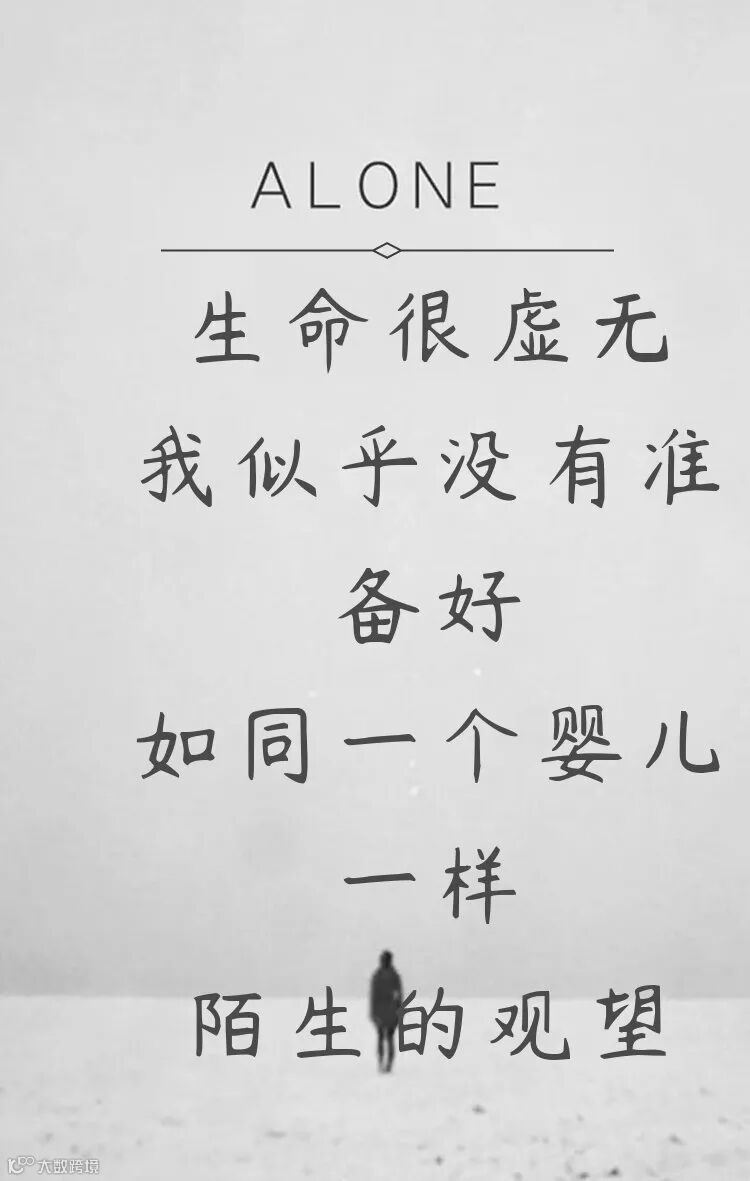 ALONE
生命很虚无
我似乎没有准
备好
如同一个婴儿
一样
陌生的观望
大数跨境